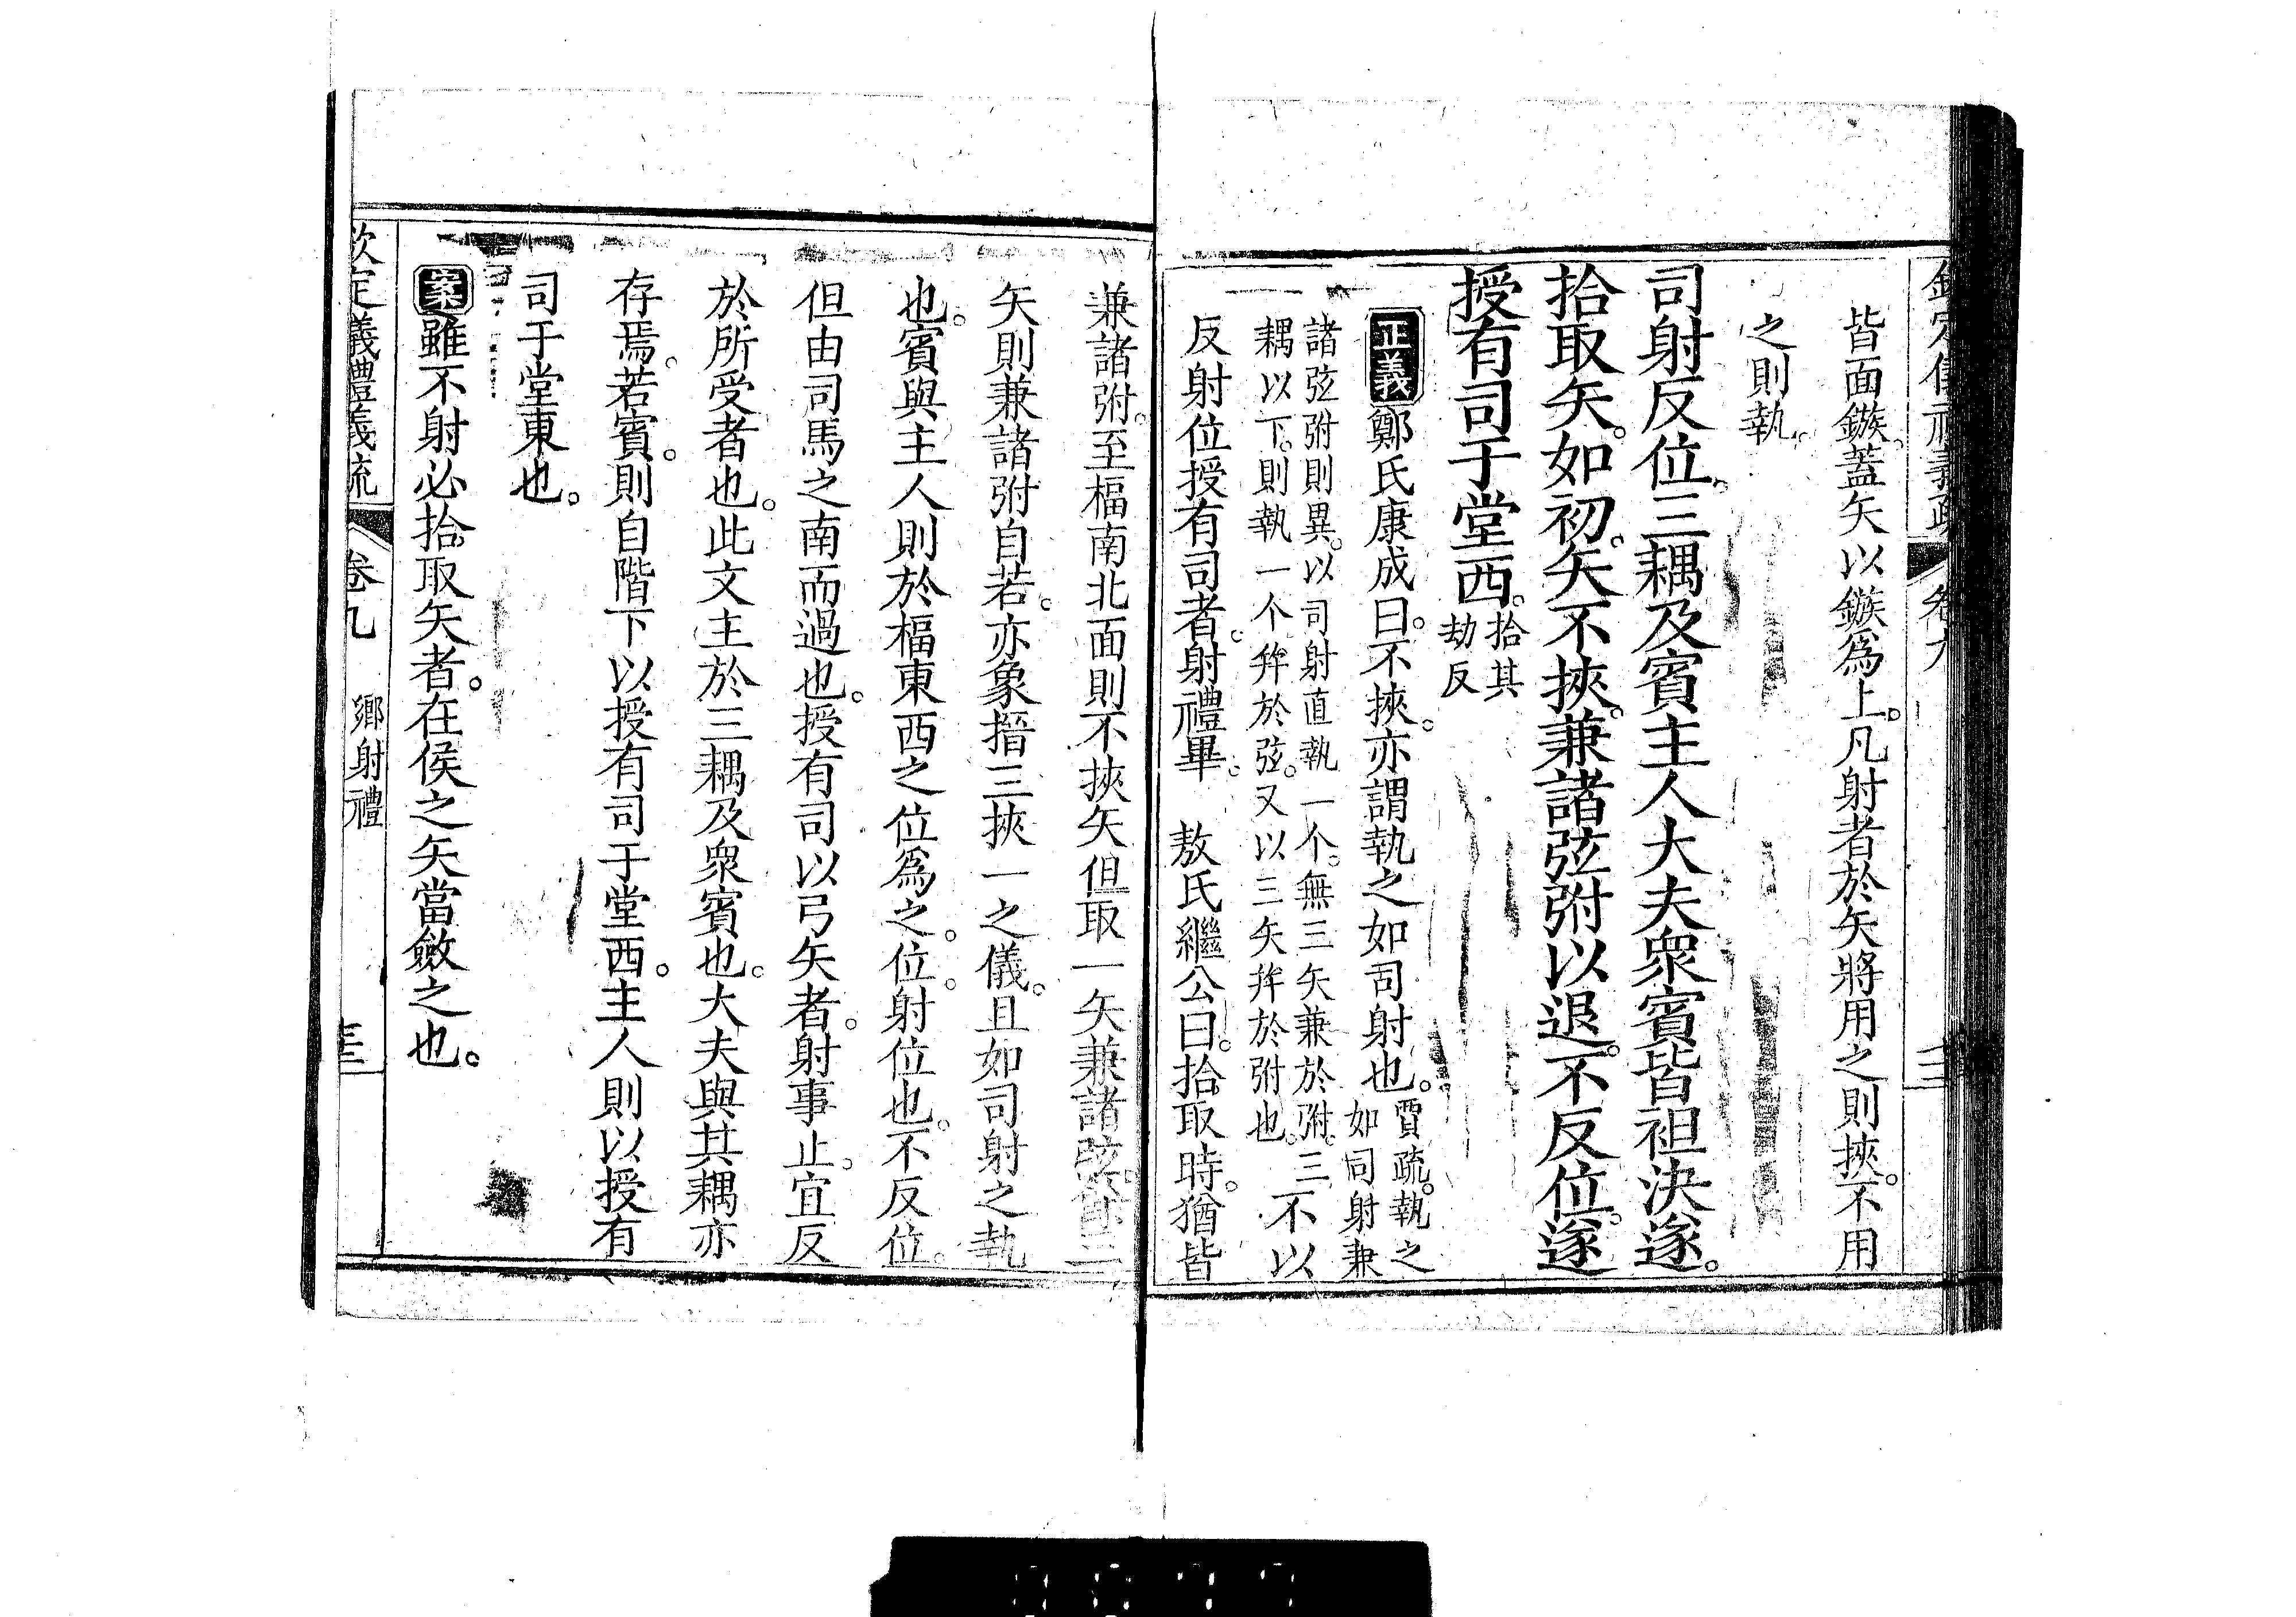 皆面鏃。蓋矢以鏃爲上。凡射者於矢將用之則挾。不用
之則執。
司射反位。三耦及賓主人大夫衆賓皆袒決遂。
拾取矢。如初。矢不挾。兼諸弦弣以退。不反位。遂
授有司于堂西。拾其
劫反
正義鄭氏康成曰。不挾。亦謂執之如司射也。賈疏。執之
如司射兼
諸弦弣則異。以司射直執一个。無三矢兼於弣。三
耦以下。則執一个筓於弦。又以三矢筓於弣也。不以
反射位授有司者。射禮畢。 敖氏繼公曰。拾取時。猶皆
兼諸弣。至楅南北面則不挾矢但取一矢兼諸弦。三
矢則兼諸弣自若。亦象搢三挾一之儀。且如司射之執
也。賓與主人則於楅東西之位爲之。位。射位也。不反位。
但由司馬之南而過也。授有司以弓矢者。射事止。宜反
於所受者也。此文主於三耦及衆賓也。大夫與其耦亦
存焉。若賓。則自階下以授有司于堂西。主人則以授有
司于堂東也。
案雖不射必拾取矢者。在侯之矢當斂之也。
欽定儀禮義疏 卷九 鄉射禮